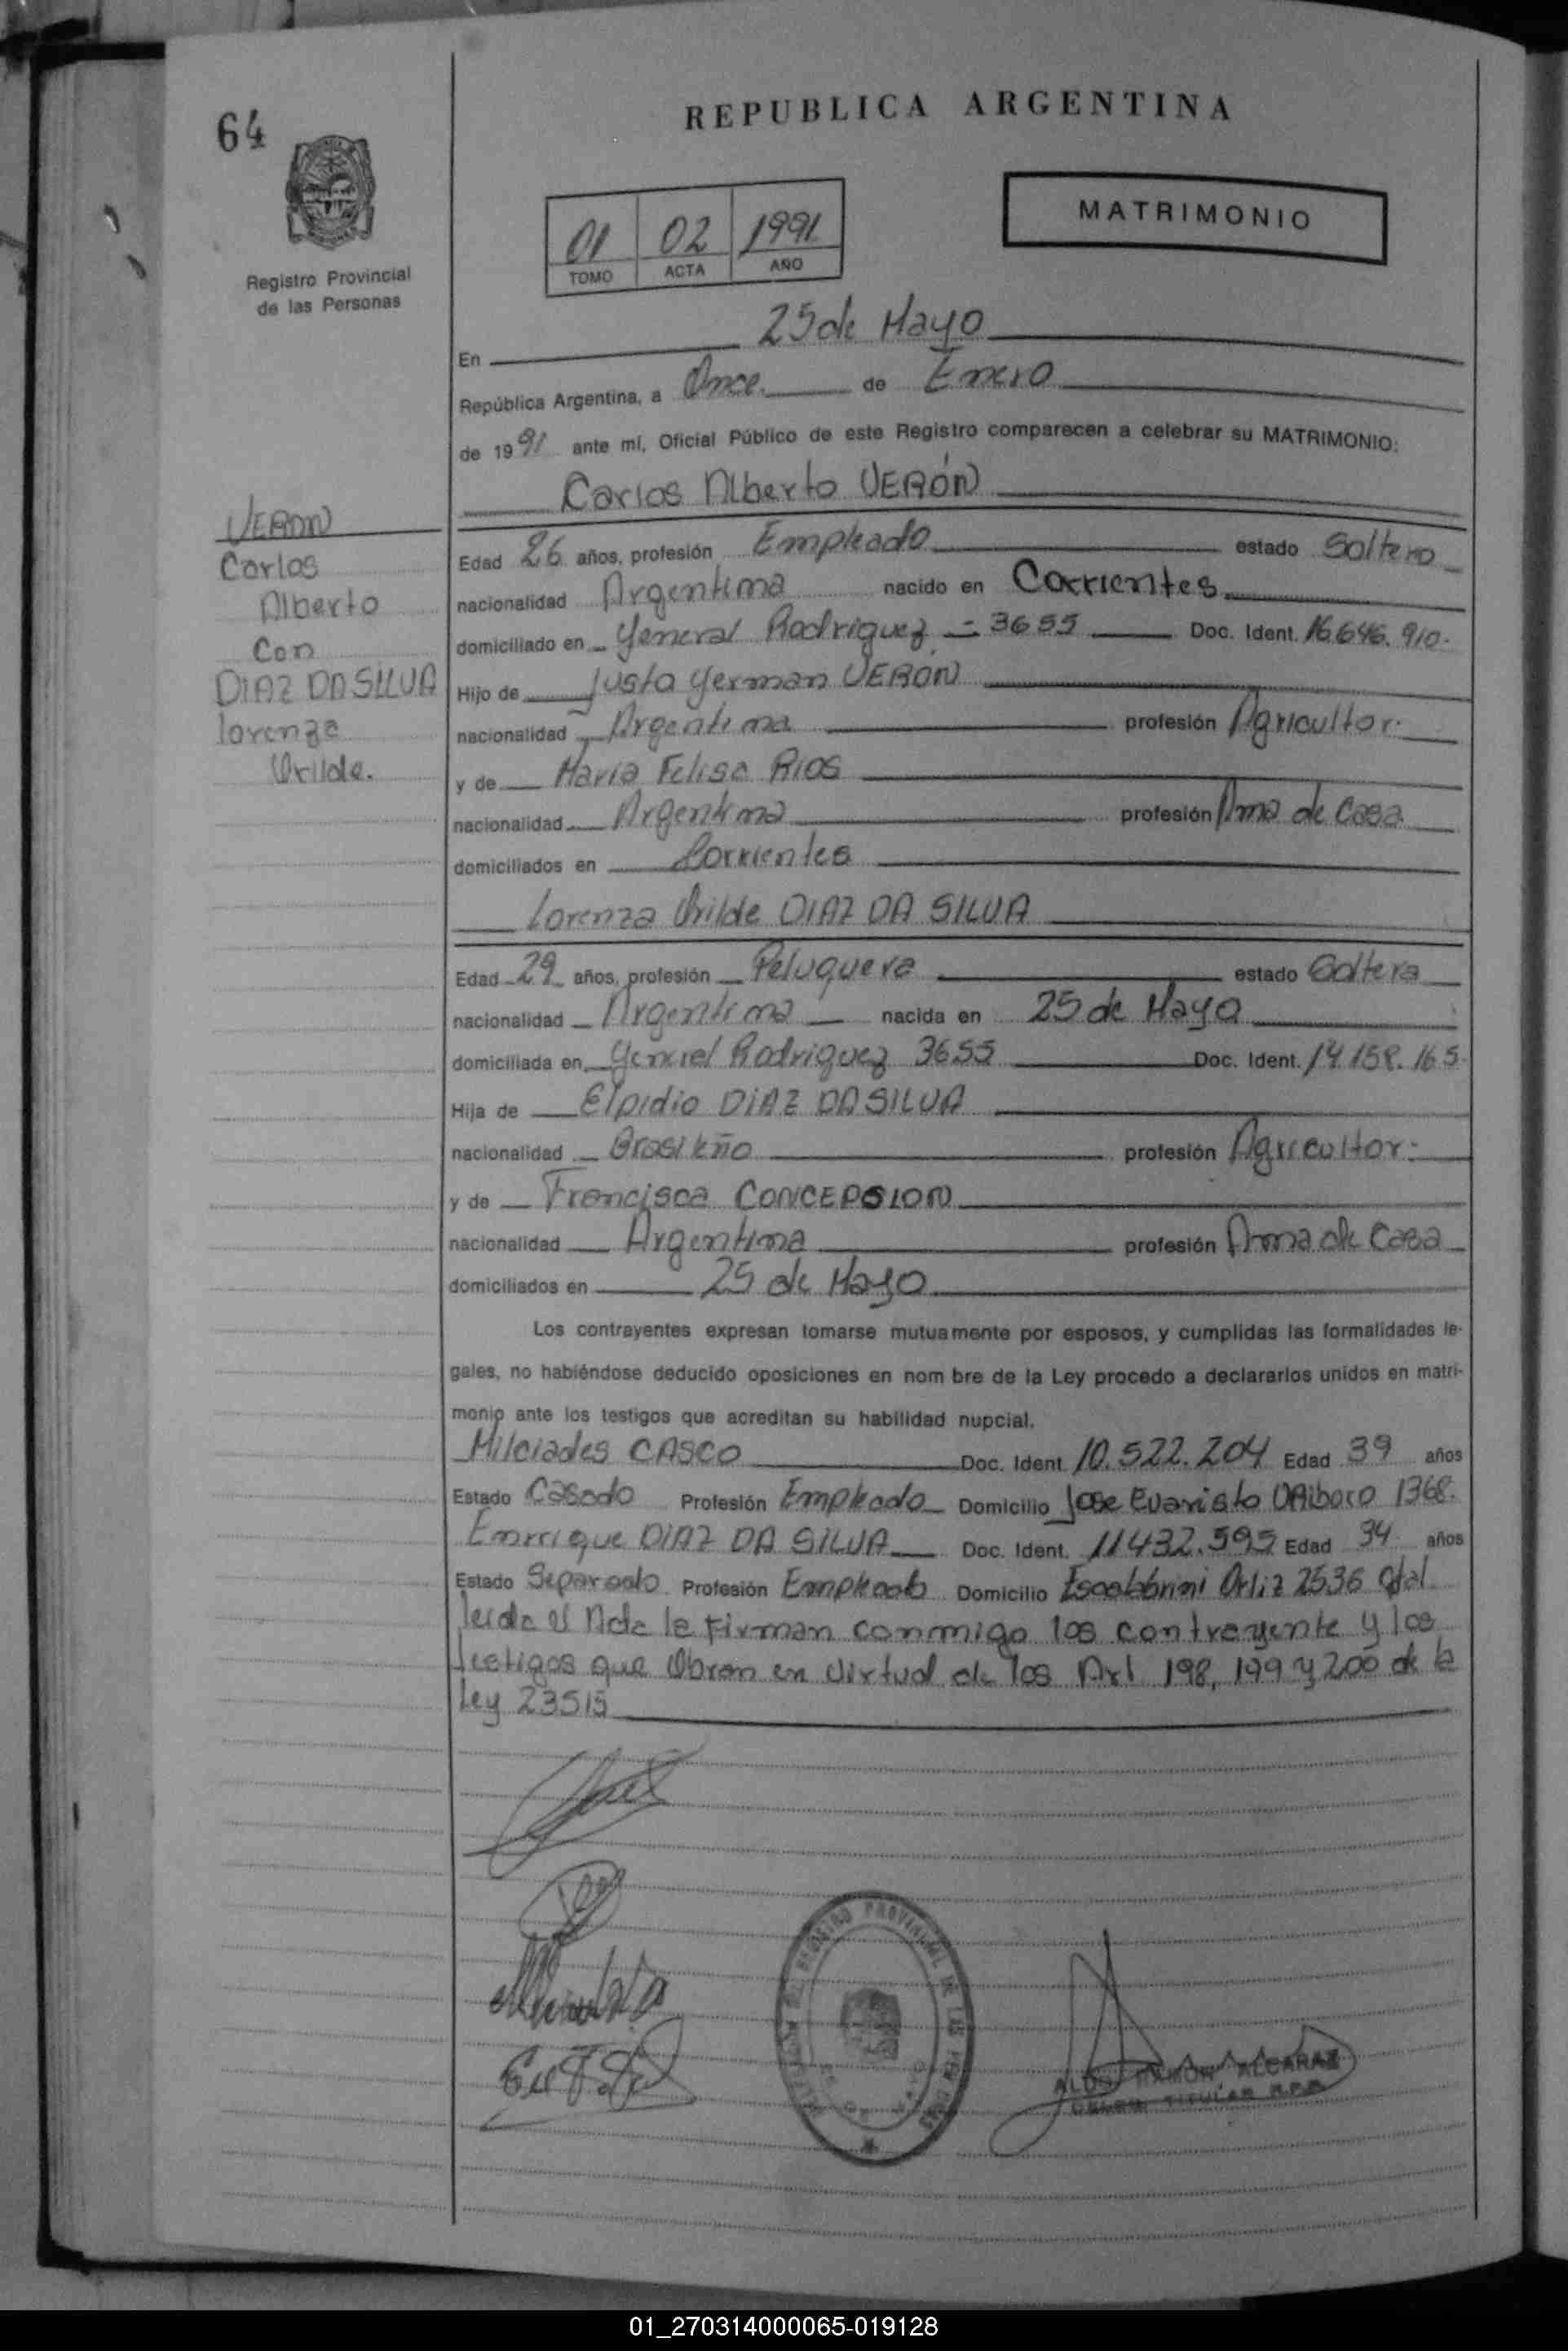 64
REPUBLICA ARGENTINA
MATRIMONIO
01 02 1991
TOMO ACTA AÑO
Registro Provincial
de las Personas
En 25 de Mayo
República Argentina, a Once de Enero
de 1991 ante mí, Oficial Público de este Registro comparecen a celebrar su MATRIMONIO:
Carlos Alberto VERÓN
VERON
Carlos
Alberto
Con
DIAZ DA SILVA
lorenza
Orilde.
Edad 26 años, profesión Empleado estado Soltero
nacionalidad Argentina nacido en Corrientes
domiciliado en General Rodriguez = 3655 Doc. Ident. 16.646.910.
Hijo de Justo German VERÓN
nacionalidad Argentina profesión Agricultor.
y de María Felisa RIOS
nacionalidad Argentina profesión Ama de Casa
domiciliados en Corrientes
Lorenza Orilde DIAZ DA SILVA
Edad 29 años, profesión Peluquera estado Soltera
nacionalidad Argentina nacida en 25 de Mayo
domiciliada en General Rodriguez 3655 Doc. Ident. 14.158.165.
Hija de Elpidio DIAZ DA SILVA
nacionalidad Brasileño profesión Agricultor.
y de Francisca CONCEPSION
nacionalidad Argentina profesión Ama de Casa
domiciliados en 25 de Mayo
Los contrayentes expresan tomarse mutuamente por esposos, y cumplidas las formalidades le-
gales, no habiéndose deducido oposiciones en nom bre de la Ley procedo a declararlos unidos en matri-
monio ante los testigos que acreditan su habilidad nupcial.
Milciades CASCO Doc. Ident. 10.522.204 Edad 39 años
Estado Casado Profesión Empleado Domicilio Jose Evaristo 1368.
Enrrique DIAZ DA SILVA Doc. Ident. 11432.595 Edad 34 años
Estado Separado Profesión Empleado Domicilio Ortiz 2536
leida el Acta la Firman conmigo los contrayente y los
testigos que Obran en virtud de los Art 198, 199 y 200 de la
Ley 23515
REGISTRO PROVINCIAL DE LAS PERSONAS
25 DE MAYO
ALDO RAMON ALCARAZ
DELEG. TITULAR R.P.P.
01_270314000065-019128